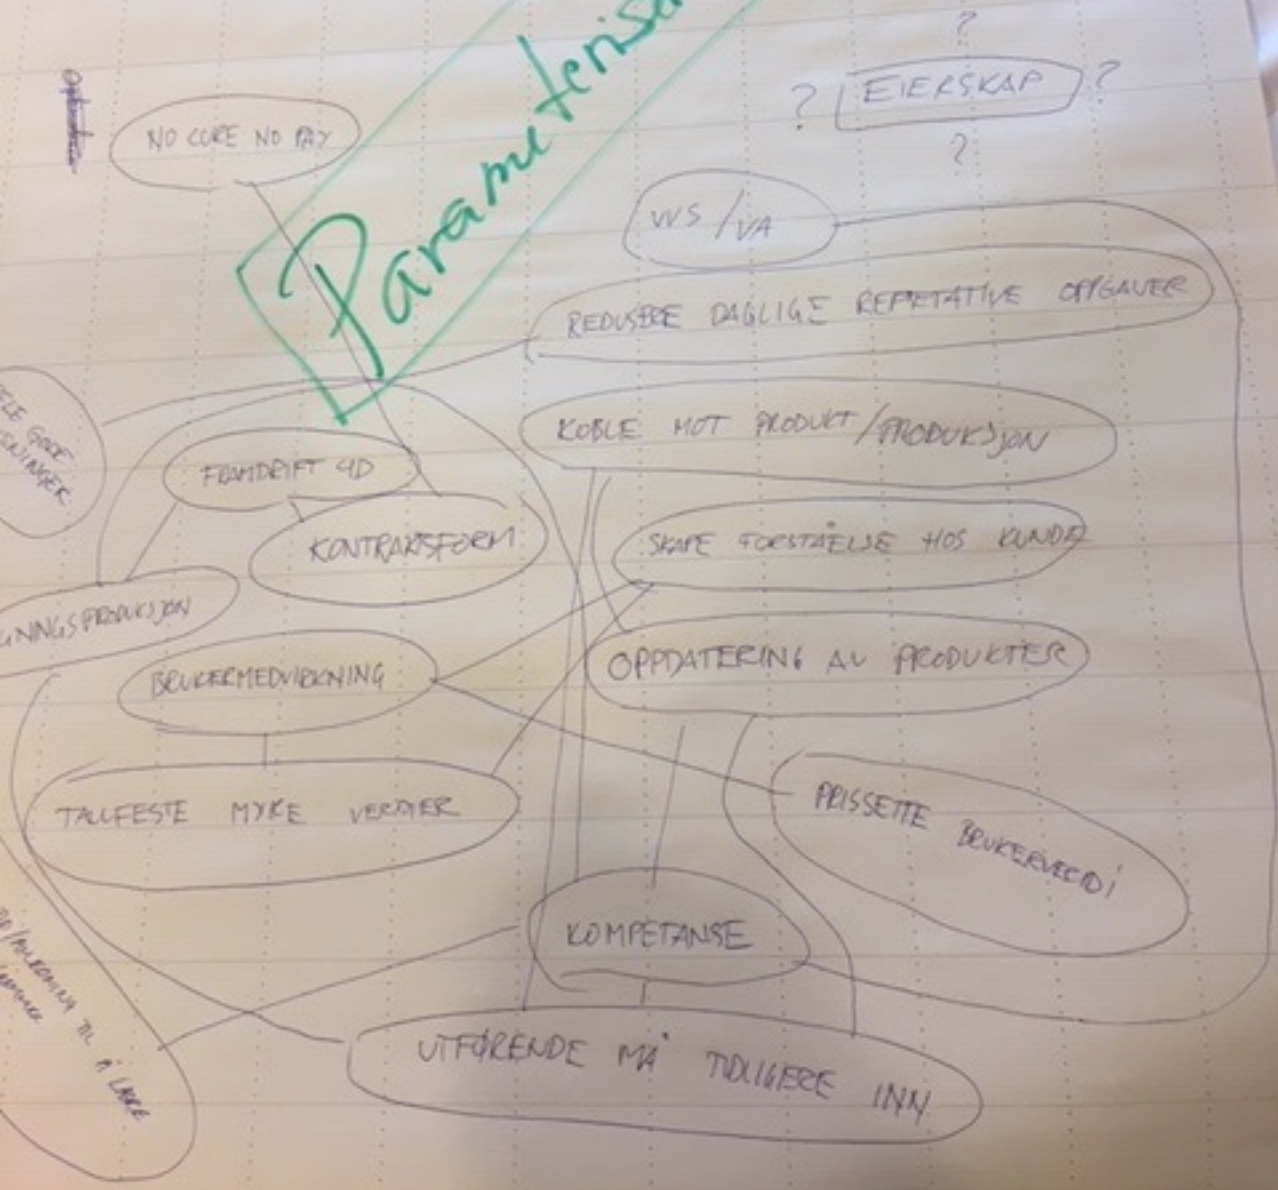 ?
? EIERSKAP ?
?
NO CURE NO PAY
Parameteris
VVS/VA
REDUSERE DAGLIGE REPETATIVE OPPGAVER
KOBLE MOT PRODUKT/PRODUKSJON
ELE GODE
SNINGER
FRAMDRIFT 4D
KONTRAKTSFORM
SKAPE FORSTÅELSE HOS KUNDE
GNINGSPRODUKSJON
BRUKERMEDVIRKNING
OPPDATERING AV PRODUKTER
TALLFESTE MYKE VERDIER
PRISSETTE
BRUKERVERDI
KOMPETANSE
TIL Å LÆRE
UTFØRENDE MÅ TIDLIGERE INN